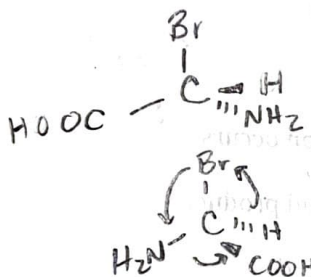 Br
HOOC C H
NH2
Br
C H
H2N COOH